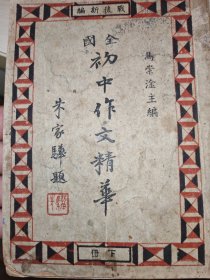 戰後新編
全國
初中作文精華
馬崇淦主編
朱家驊題
下冊